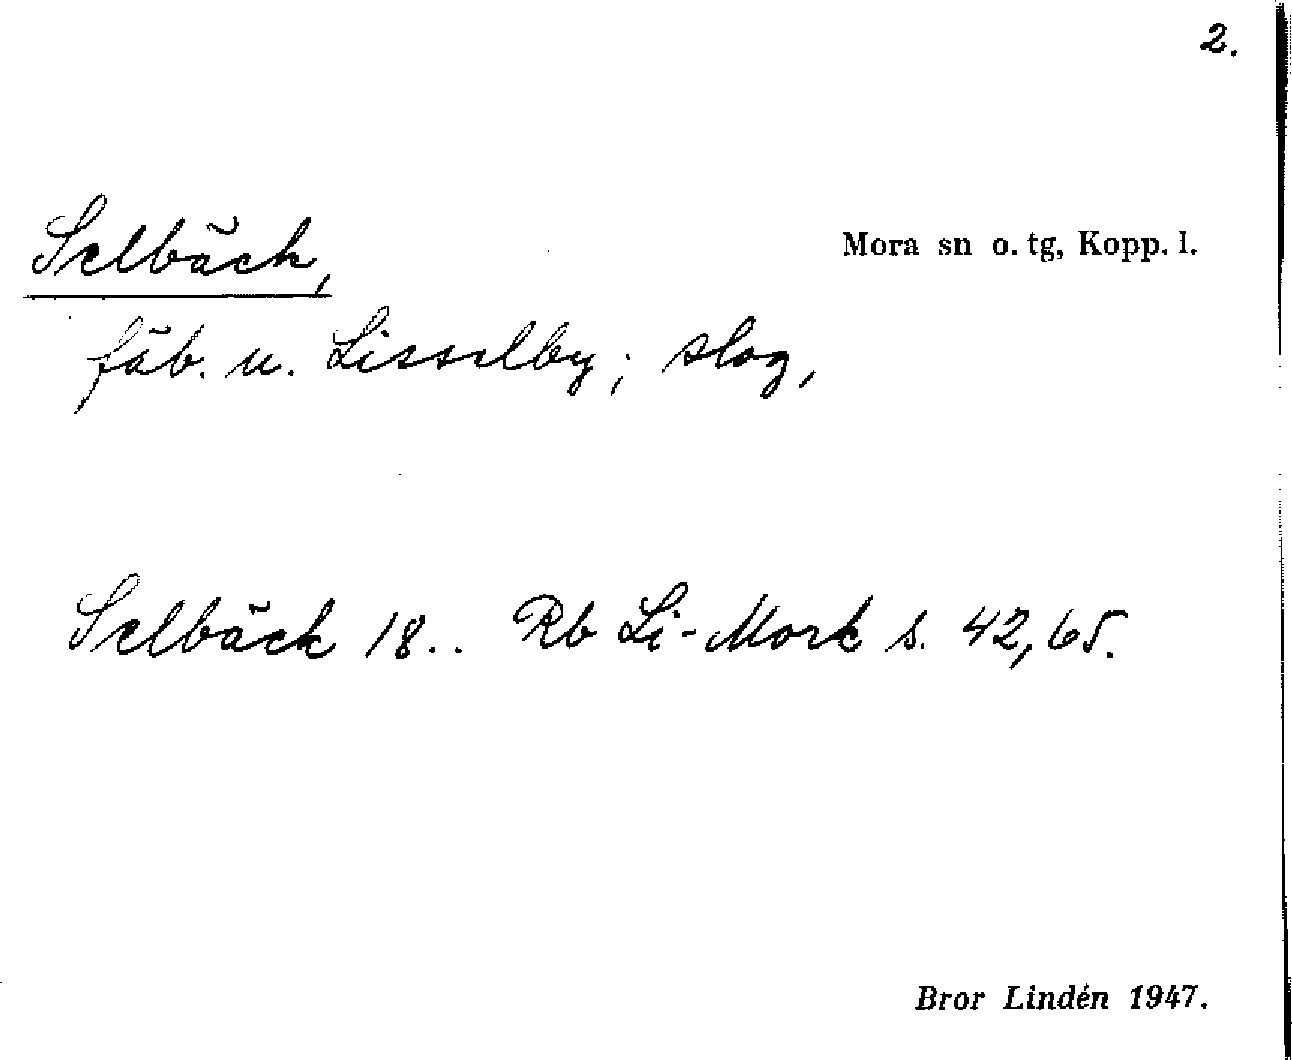 2.
Selbäck,
Mora sn o. tg, Kopp. l.
fäb. u. Lisselby; slog,
Selbäck 18.. Rb Li-Mork s. 42, 65.
Bror Lindén 1947.